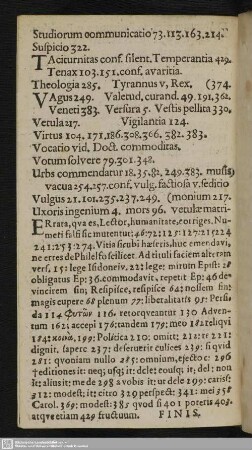 Studiorum communicatio 73.113.163.214.
Suspicio 322.
TAciturnitas conf. silent. Temperantia 429.
Tenax 103.151. conf. avaritia.
Theologia 285. Tyrannus v. Rex. (374.
VAgus 249. Valetud. curand. 49.191.362.
Veneti 383. Versura 5. Vestis pellita 330.
Vetula 217. Vigilantia 124.
Virtus 104. 171.186.308.366. 382.383.
Vocatio vid. Doct. commoditas.
Votum solvere 79.301.348.
Urbs commendatur 18.35.82. 249.383. musis
vacua 254.257. conf. vulg. factiosa v. seditio
Vulgus 21.101.235.237.249. (monium 217.
Uxoris ingenium 4. mors 96. vetulæ matri-
ERrata, qua es, Lector, humanitate, corriges. Nu-
meri falsi sic mutentur: 46:72: 125: 127: 215: 224
241: 253: 274. Vitia sicubi hæseris, huc emendavi,
ne erres de Philelfo scilicet. Ad tituli faciem alteram
vers. 15: lege Isidoneiv. 22: lege: mirum Epist: 28
obligatus Ep: 36. commodavit, repetit Ep: 46 de-
vincirem sin; Respisce, resipisce 64: nossem fin:
magis cupere 68 plenum 77: liberalitatis 95: Persi-
da 114 Φυτῶν 116. retorqveantur 130 Adven-
tum 162: accepi 176: tandem 179: meo 182: reliqvi
184: 199: Politica 210: omitt; 212: te 222
dignit. sapere 237: deseruerit culices 239: si qvid
261: qvoniam nullo 285: omnium, ejecto c: 296
editiones it: neq; usq; it: dele: eousq; it: del: non
it: alius it: mede 298 a vobis it: ut dele 199: catis:
312: modest: it: citro 329 perspect: 341: mei 358
Carol. 369: modest: 385 quod si 401 poteris 403.
atqve etiam 429 fructuum. FINIS.